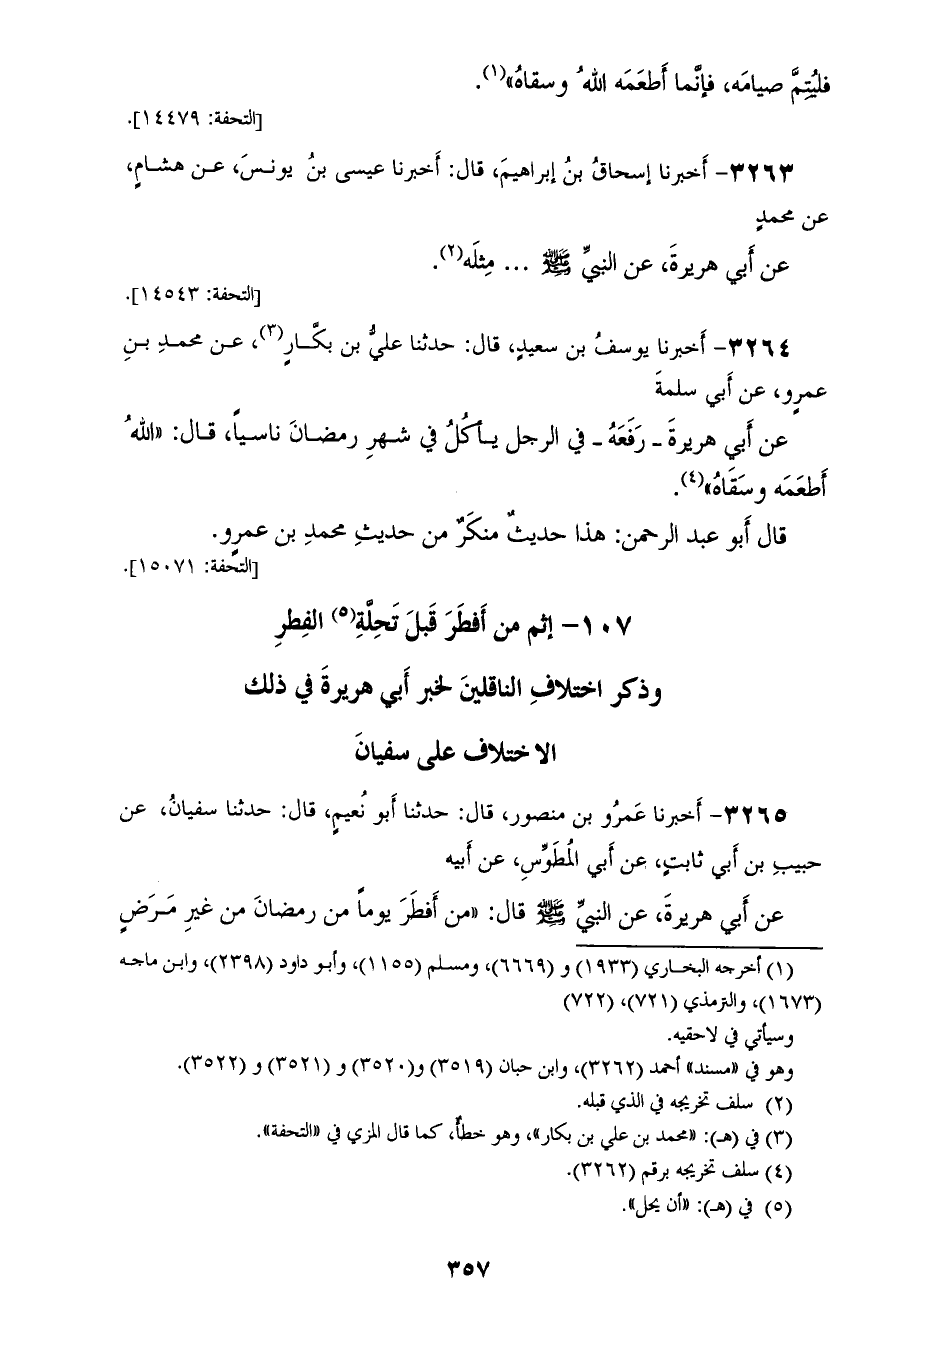 فليُتِمَّ صيامَه، فإنَّما أَطعَمَه اللهُ وسقاهُ»(١).
[التحفة: ١٤٤٧٩].
٣٢٦٣- أَخبرنا إسحاقُ بنُ إبراهيمَ، قال: أَخبرنا عيسى بنُ يونسَ، عن هشامٍ،
عن محمدٍ
عن أَبي هريرةَ، عن النبيِّ ﷺ ... مِثلَه(٢).
[التحفة: ١٤٥٤٣].
٣٢٦٤- أَخبرنا يوسفُ بن سعيدٍ، قال: حدثنا عليُّ بن بكَّارٍ(٣)، عن محمدِ بنِ
عمرٍو، عن أَبي سلمةَ
عن أَبي هريرةَ ـ رَفَعَهُ ـ في الرجل يأكُلُ في شهرِ رمضانَ ناسياً، قال: «اللهُ
أَطعَمَه وسَقَاهُ»(٤).
قال أَبو عبد الرحمن: هذا حديثٌ منكَرٌ من حديثِ محمدِ بن عمرٍو.
[التحفة: ١٥٠٧١].
١٠٧- إثم من أَفطَرَ قَبلَ تَحِلَّةِ(٥) الفِطرِ
وذكر اختلافِ الناقلينَ لخبر أَبي هريرةَ في ذلك
الاختلاف على سفيانَ
٣٢٦٥- أَخبرنا عَمرُو بن منصور، قال: حدثنا أَبو نُعيمٍ، قال: حدثنا سفيانُ، عن
حبيبِ بن أَبي ثابتٍ، عن أَبي المُطَوِّسِ، عن أَبيه
عن أَبي هريرةَ، عن النبيِّ ﷺ قال: «من أَفطَرَ يوماً من رمضانَ من غيرِ مَرَضٍ
(١) أخرجه البخاري (١٩٣٣) و (٦٦٦٩)، ومسلم (١١٥٥)، وأبو داود (٢٣٩٨)، وابن ماجه
(١٦٧٣)، والترمذي (٧٢١)، (٧٢٢)
وسيأتي في لاحقيه.
وهو في «مسند» أحمد (٣٢٦٢)، وابن حبان (٣٥١٩) و(٣٥٢٠) و (٣٥٢١) و (٣٥٢٢).
(٢) سلف تخريجه في الذي قبله.
(٣) في (هـ): «محمد بن علي بن بكار»، وهو خطأ، كما قال المزي في «التحفة».
(٤) سلف تخريجه برقم (٣٢٦٢).
(٥) في (هـ): «أن يحل».
٣٥٧